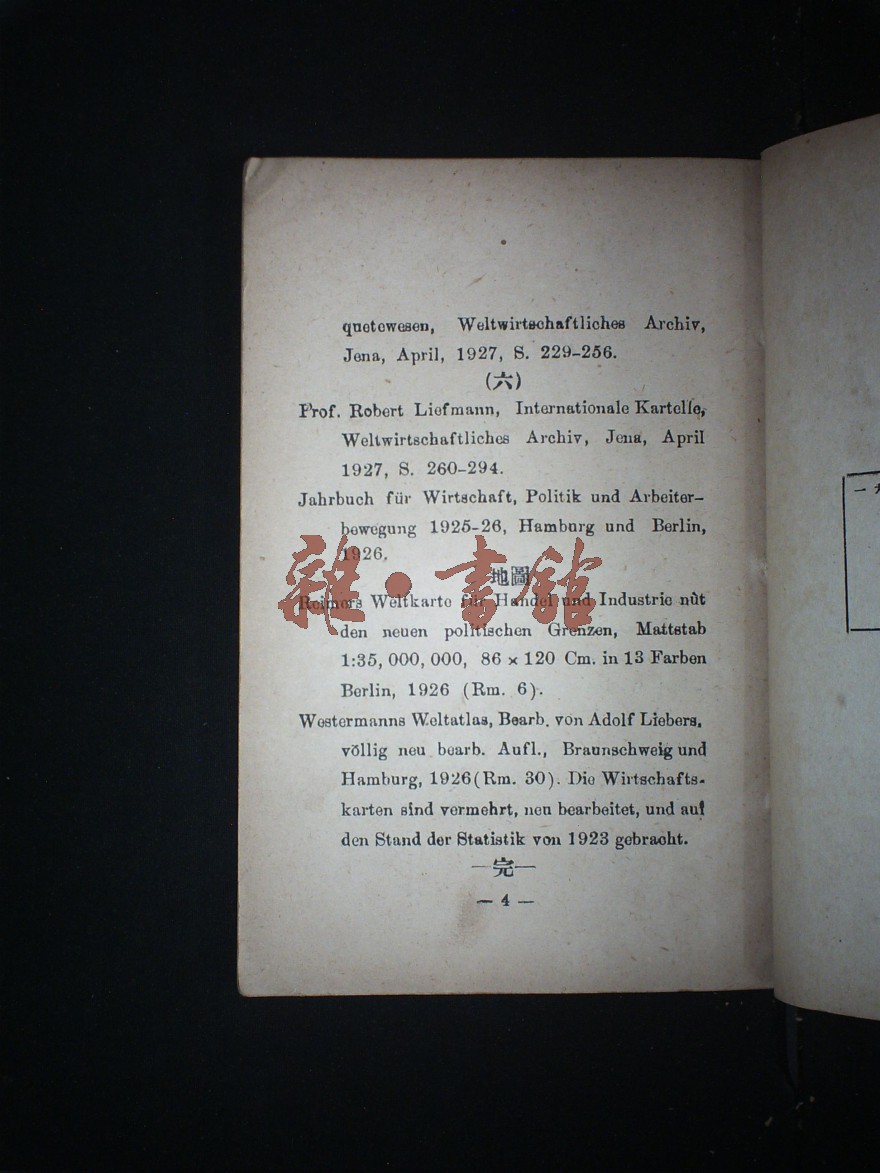 quotewesen, Weltwirtschaftliches Archiv,
Jena, April, 1927, S. 229-256.
(六)
Prof. Robert Liefmann, Internationale Kartelle,
Weltwirtschaftliches Archiv, Jena, April
1927, S. 260-294.
Jahrbuch für Wirtschaft, Politik und Arbeiter-
bewegung 1925-26, Hamburg und Berlin,
1926.
地圖
雜·書館
Reimers Weltkarte für Handel und Industrie nùt
den neuen politischen Grenzen, Mattstab
1:35,000,000, 86 × 120 Cm. in 13 Farben
Berlin, 1926 (Rm. 6).
Westermanns Weltatlas, Bearb. von Adolf Liebers,
völlig neu bearb. Aufl., Braunschweig und
Hamburg, 1926(Rm. 30). Die Wirtschafts-
karten sind vermehrt, neu bearbeitet, und auf
den Stand der Statistik von 1923 gebracht.
—完—
— 4 —